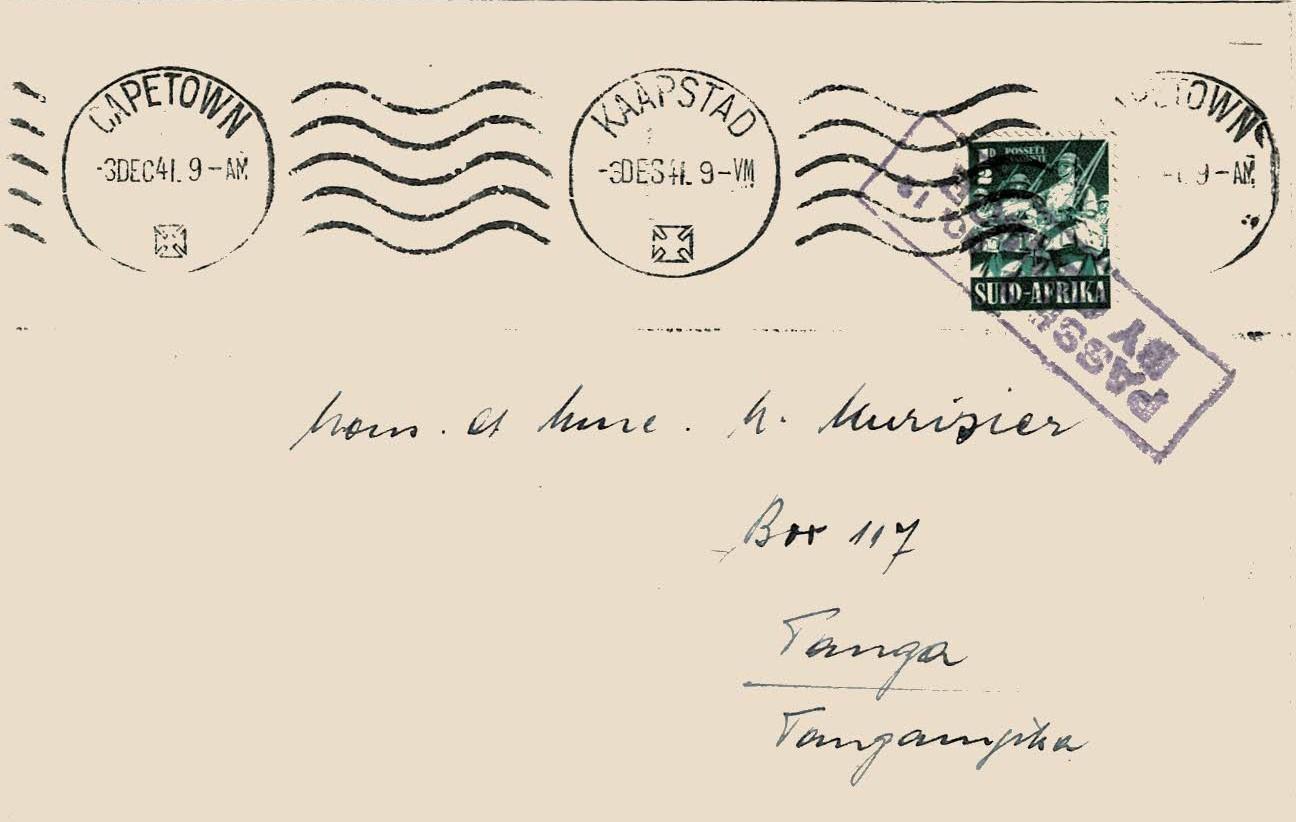 CAPETOWN
-3DEC41. 9-AM
KAAPSTAD
-3DES41. 9-VM
TOWN
9-AM
½D
POSSEËL
SUID-AFRIKA
PASSED
BY
Mons. et Mme. M. Murisier
Box 117
Tanga
Tanganyika